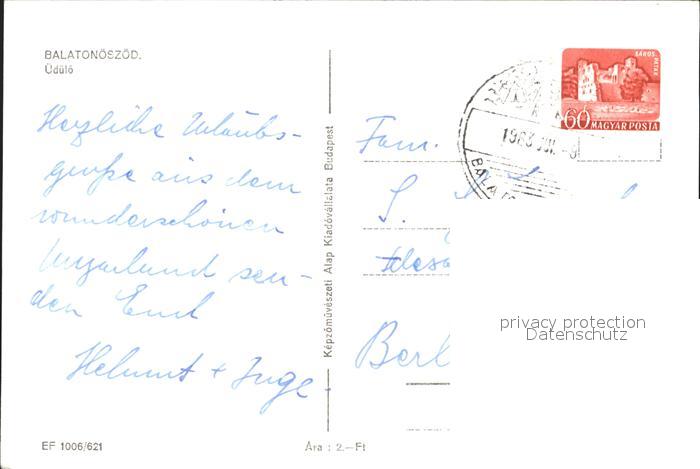 BALATONŐSZÖD.
Üdülő
Herzliche Urlaubs-
grüße aus dem
wunderschönen
Ungarland sen-
den Euch
Helmut + Inge.
Képzőművészeti Alap Kiadóvállalata Budapest
SÁROS-
PATAK
60 MAGYAR POSTA
1963 JUL.
BALA
Fam.
S.
Berl
privacy protection
Datenschutz
EF 1006/621
Ára : 2.—Ft